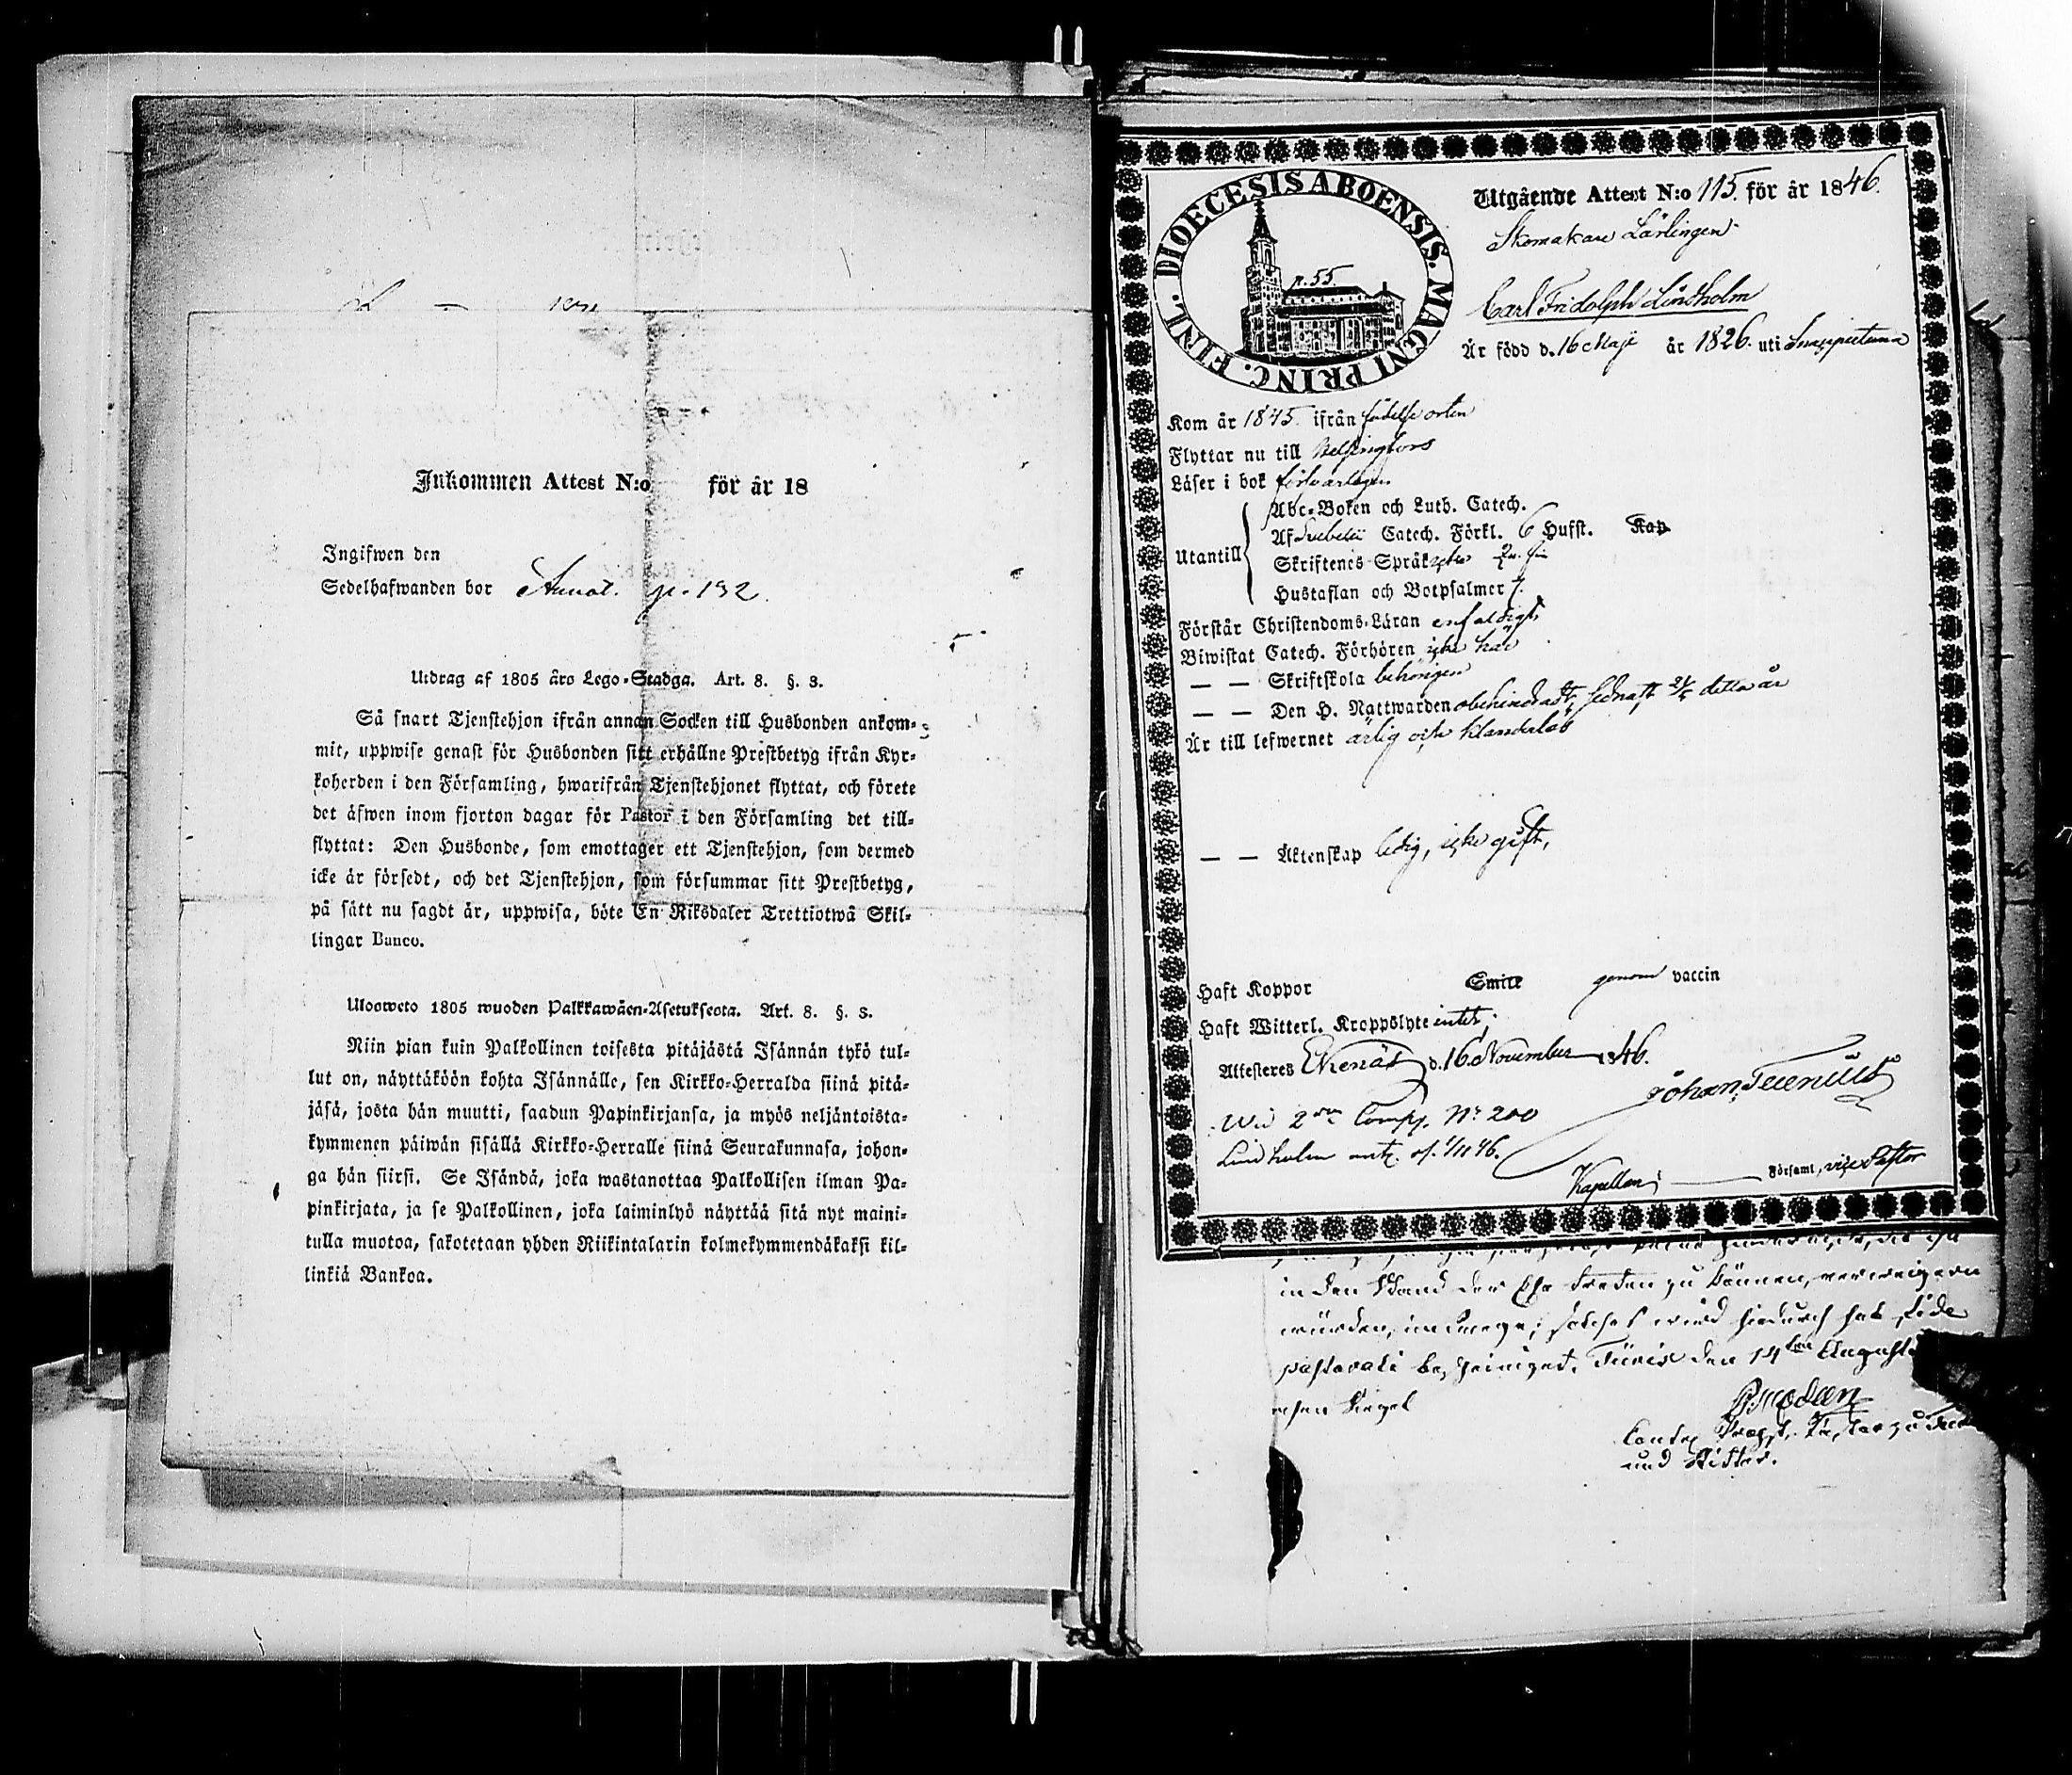 Inkommen Attest N:o för år 18
Ingifwen den
Sedelhafwanden bor p. 132.
Utdrag af 1805 års Lego-Stadga. Art. 8. §. 3.
Så snart Tjenstehjon ifrån annan Socken till Husbonden ankom-
mit, uppwise genast för Husbonden sitt erhållne Prestbetyg ifrån Kyr-
koherden i den Församling, hwarifrån Tjenstehjonet flyttat, och förete
det äfwen inom fjorton dagar för Pastor i den Församling det till-
flyttat: Den Husbonde, som emottager ett Tjenstehjon, som dermed
icke är försedt, och det Tjenstehjon, som försummar sitt Prestbetyg,
på sätt nu sagdt är, uppwisa, böte En Riksdaler Trettiotwå Skil-
lingar Banco.
Ulosweto 1805 wuoden Palkkawäen-Asetuksesta. Art. 8. §. 3.
Niin pian kuin Palkollinen toisesta pitäjästä Isännän tykö tul-
lut on, näyttäköön kohta Isännälle, sen Kirkko-Herralda siinä pitä-
jäsä, josta hän muutti, saadun Papinkirjansa, ja myös neljäntoista-
kymmenen päiwän sisällä Kirkko-Herralle siinä Seurakunnasa, johon-
ga hän siirsi. Se Isändä, joka wastanottaa Palkollisen ilman Pa-
pinkirjata, ja se Palkollinen, joka laiminlyö näyttää sitä nyt maini-
tulla muotoa, sakotetaan yhden Riikintalarin kolmekymmendäkaksi kil-
linkiä Bankoa.
DIOECESIS ABOENSIS. MAGNI PRINC. FINL.
p. 55.
Utgående Attest N:o 115. för år 1846.
Skomakare Lärlingen
Carl Fridolph Lindholm
Är född d. 16 Maji år 1826. uti Snappertuna
Kom år 1845. ifrån födelse orten
Flyttar nu till Helsingfors
Läser i bok försvarligen
Utantill
Abc-Boken och Luth. Catech.
Af Svebelii Catech. Förkl. 6 Hufst. Kap
Skriftenes Språk
Hustaflan och Botpsalmer 7.
Förstår Christendoms-Läran enfaldigt
Biwistat Catech. Förhören icke här
— — Skriftskola behörigen
— — Den H. Nattwarden obehindradt, sednast detta år
Är till lefwernet ärlig och klanderlös
— — Äktenskap ledig, icke gift,
Haft Koppor Smitt genom vaccin
Haft Witterl. Kroppslyte intet,
Attesteres Ekenäs d. 16 November 1846.
Johan
Wid 2dra Comp. N:o 200
Lindholm 1/11 46.
Kapellan i — Församl, vice Pastor
in den Stand der Ehe treten zu können, verweigern
würden, solches wird hiedurch sub fide
pastorali bescheiniget. den 14ten Augusti
und Ritter.